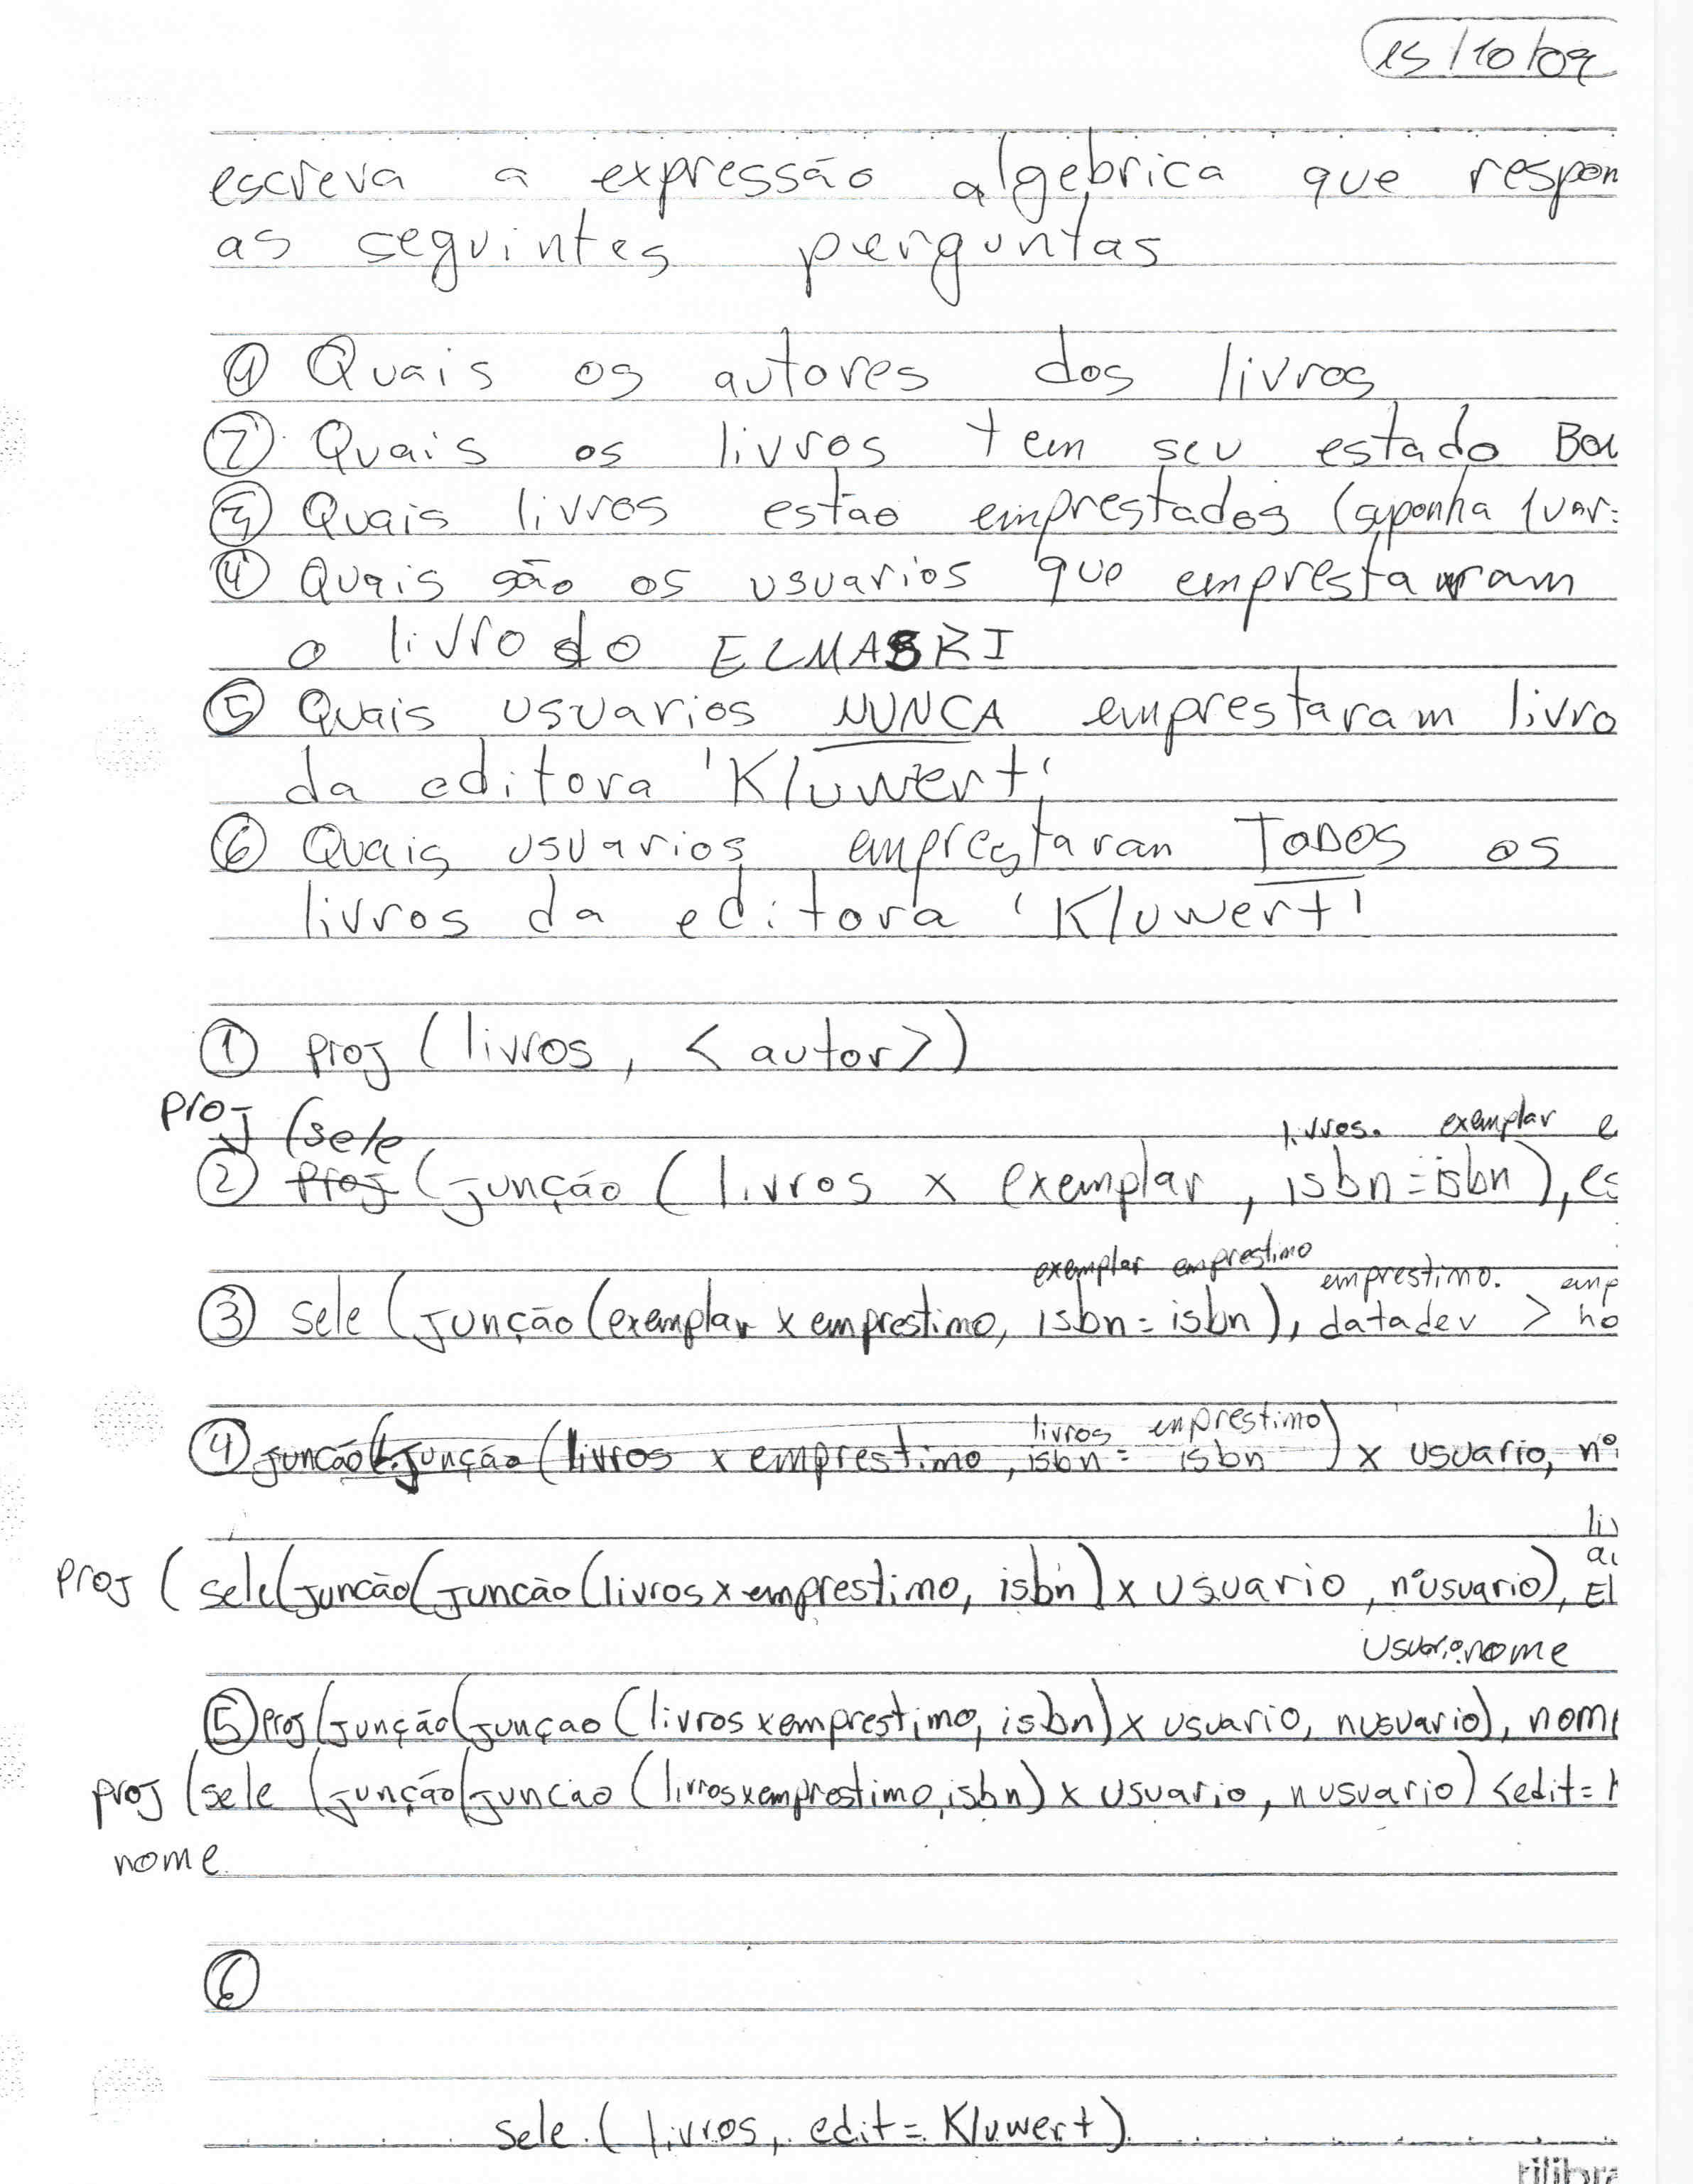 15/10/09
escreva a expressão algebrica que respon
as seguintes perguntas
① Quais os autores dos livros
② Quais os livros tem seu estado Bo
③ Quais livros estão emprestados (suponha
④ Quais são os usuarios que emprestaram
o livro do ELMASRI
⑤ Quais usuarios NUNCA emprestaram livro
da editora 'Kluwert'
⑥ Quais usuarios emprestaran TODOS os
livros da editora 'Kluwert'
① proj (livros, <autor>)
proj (sele
livros. exemplar e
② proj (junção (livros x exemplar, isbn=isbn), es
exemplar emprestimo emprestimo. emp
③ sele (junção (exemplar x emprestimo, isbn = isbn), datadev > ho
livros emprestimo
④ juncão (junção (livros x emprestimo, isbn = isbn) x usuario, nº
li
proj (sele(juncão(juncão(livros x emprestimo, isbn) x usuario, nºusuario), El
usuario.nome
⑤ proj (junção(junçao (livros x emprestimo, isbn) x usuario, nusuario), nom
proj (sele (junção(juncao (livros x emprestimo, isbn) x usuario, nusuario) <edit=
nome
⑥
sele (livros, edit = Kluwert)
tilibra